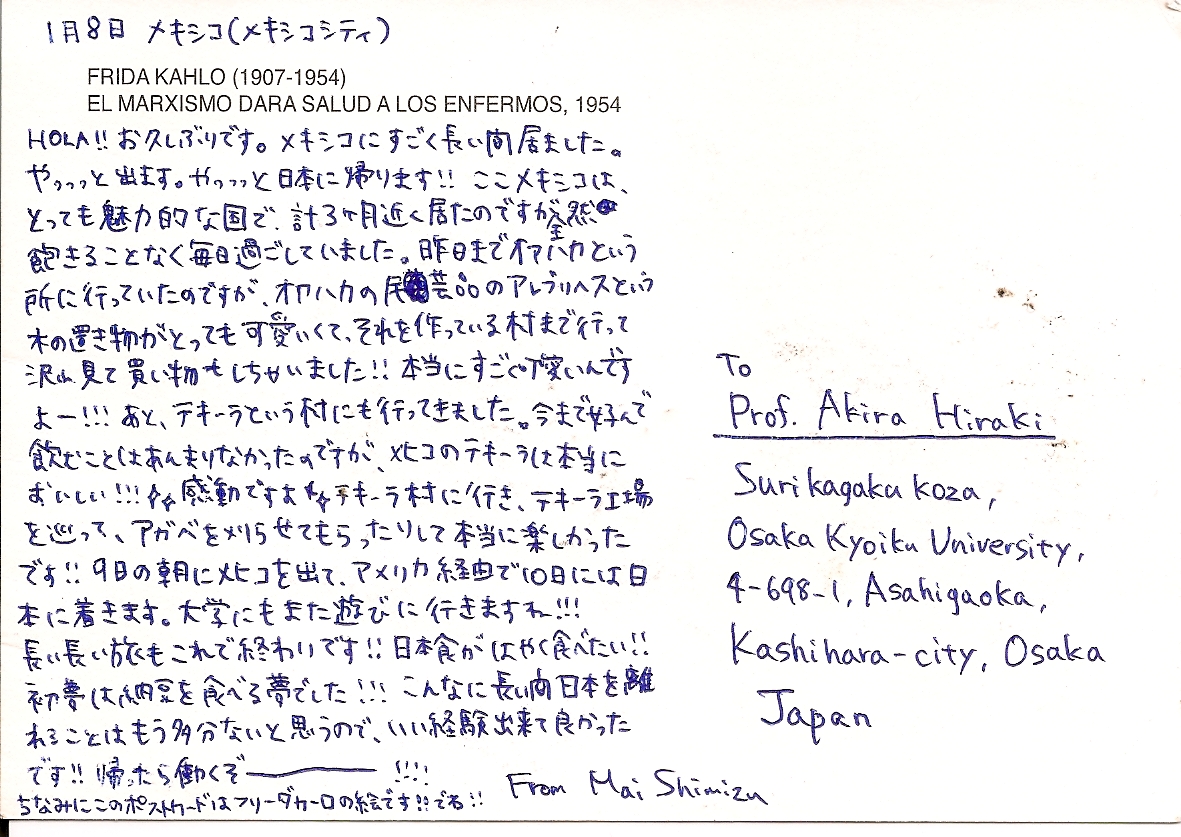 1月8日 メキシコ(メキシコシティ)
FRIDA KAHLO (1907-1954)
EL MARXISMO DARA SALUD A LOS ENFERMOS, 1954
HOLA!! お久しぶりです。メキシコにすごく長い間居ました。
やっっっと出ます。やっっっと日本に帰ります!! ここメキシコは、
とっても魅力的な国で、計3ヶ月近く居たのですが全然
飽きることなく毎日過ごしていました。昨日までオアハカという
所に行っていたのですが、オアハカの民芸品のアレブリヘスという
木の置き物がとっても可愛いくて、それを作っている村まで行って
沢山見て買い物もしちゃいました!! 本当にすごく可愛いんです
よー!!! あと、テキーラという村にも行ってきました。今まで好んで
飲むことはあんまりなかったのですが、メヒコのテキーラは本当に
おいしい!!! 感動ですよ テキーラ村に行き、テキーラ工場
を巡って、アガベを刈らせてもらったりして本当に楽しかった
です!! 9日の朝にメヒコを出て、アメリカ経由で10日には日
本に着きます。大学にもまた遊びに行きますね!!!
長い長い旅もこれで終わりです!! 日本食がはやく食べたい!!
初夢は納豆を食べる夢でした!!! こんなに長い間日本を離
れることはもう多分ないと思うので、いい経験出来て良かった
です!! 帰ったら働くぞ――― !!!!
ちなみにこのポストカードはフリーダカーロの絵です!!でる!!
From Mai Shimizu
To
Prof. Akira Hiraki
Surikagaku koza,
Osaka Kyoiku University,
4-698-1, Asahigaoka,
Kashihara-city, Osaka
Japan